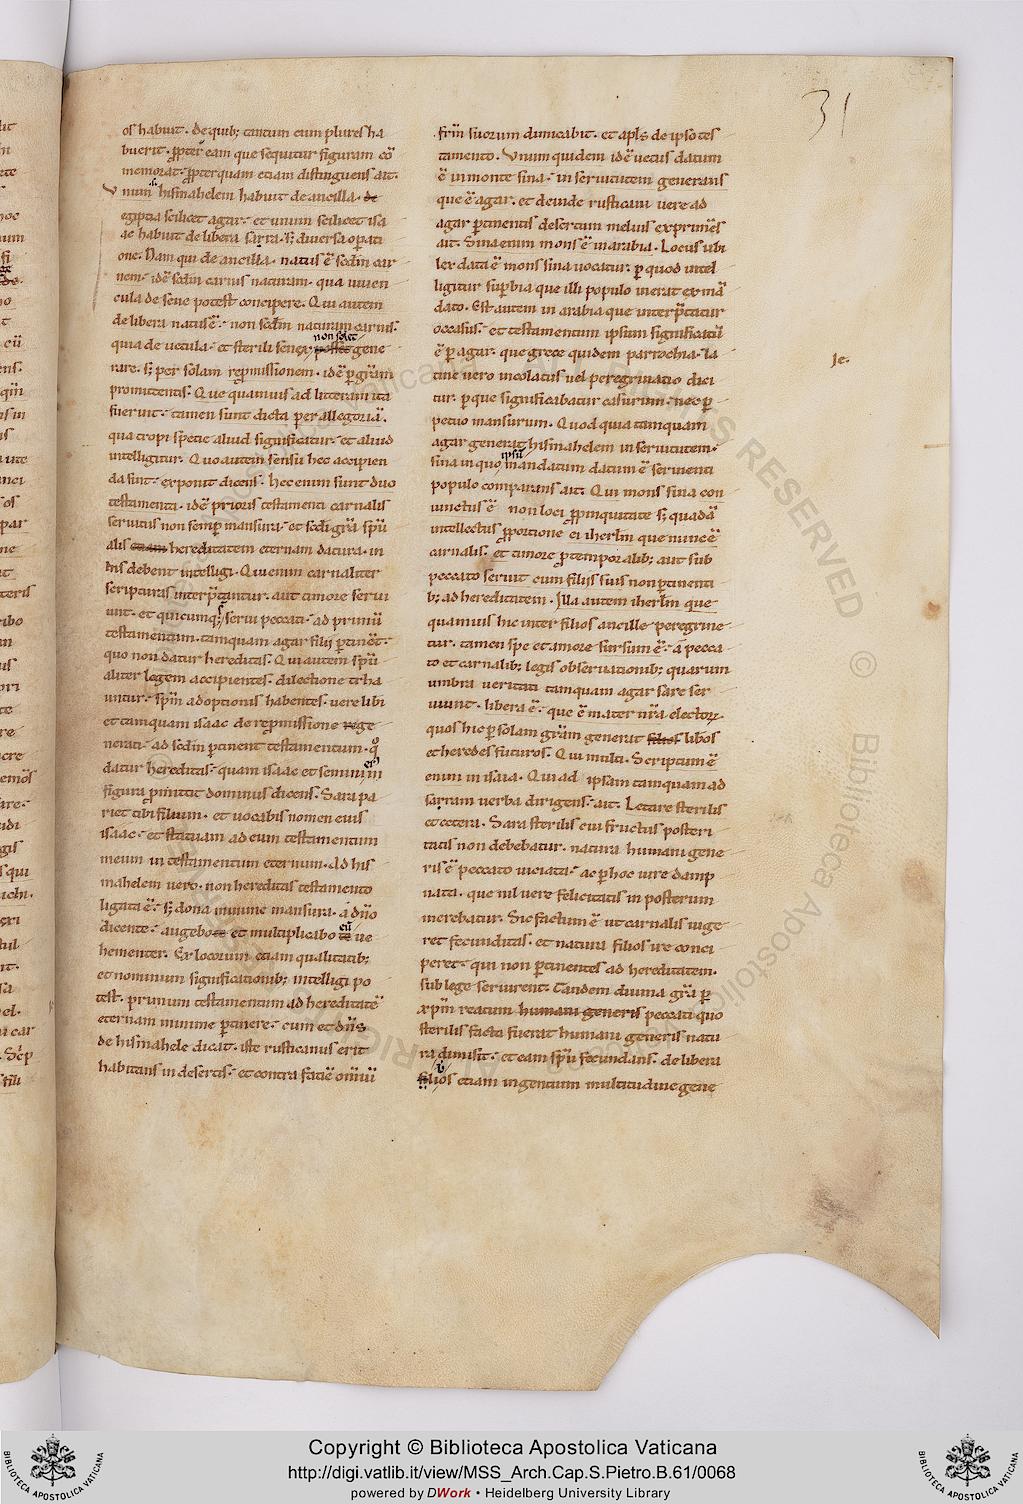 31
os habuit. de quib; tantum cum plures ha
buerit. ꝓpter eam que sequitur figuram cō
memorat. ꝓpter quam etiam distinguens ait.
Vnum hismahelem habuit de ancilla. de
egiptia scilicet agar. et unum scilicet isa
ac habuit de libera sarra. s; diuersa oꝑati
one. Nam qui de ancilla. natus ē sc̄dm car
nem. idē sc̄dm carnis naturam. qua iuuen
cula de sene potest concipere. Qui autem
de libera natus ē. non sc̄dm naturam carnis.
non solet
quia de uetula. et sterili senex posset gene
rare. s; per solam repmissionem. idē ꝑ grām
promittentis. Que quamuis ad litteram ita
fuerint. tamen sunt dicta per allegoriā.
qua tropi sp̄etie aliud significatur. et aliud
intelligitur. Quo autem sensu hec accipien
da sint. exponit dicens. hec enim sunt duo
testamenta. idē prioris testamenti carnalis
seruitus non semꝑ mansura. et sc̄di grā. spū
alis etiam hereditatem eternam datura. in
his debent intelligi. Qui enim carnaliter
scripturas interp̄tantur. aut timore serui
unt. et quicumq; serui peccati. ad primū
testamentum. tamquam agar filii ꝑtinēt.
quo non datur hereditas. Qui autem spū
aliter legem accipientes. dilectione trha
untur. spm adoptionis habentes. uere libi
et tamquam isaac de repmissione rege
nerati. ad sc̄dm ꝑtinent testamentum. qͦ
datur hereditas. quam isaac et semini in
figura p̄mittit dominus dicens. Sara pa
riet tibi filium. et uocabis nomen eius
isaac. et statuam ad eum testamentum
meum in testamentum eternum. Ad his
mahelem uero. non hereditas testamento
ligata ē. s; dona minime mansura. a dn̄o
dicente. augebo te et multiplicabo te ue
eū
hementer. Ex locorum etiam qualitatib;
et nominum significationib; intelligi po
test. primum testamentum ad hereditatē
eternam minime ꝑtinere. cum et dn̄s
de hismahele dicat. iste rusticanus erit
habitans in desertis. et contra faciē om̄iū
frm̄ suorum dimicabit. et apl̄s de ipso tes
tamento. Vnum quidem idē uetus datum
ē in monte sina. in seruitutem generans
que ē agar. et deinde rusticani uere ad
agar ꝑtinentis desertum melius exprimēs
ait. Sina enim mons ē in arabia. Locus ubi
lex data ē mons sina uocatur. ꝑ quod intel
ligitur suꝑbia que illi populo inerat ex mā
dato. Est autem in arabia que interp̄tatur
occasus. et testamentum ipsum significatū
ē ꝑ agar. que grece quidem parroehia. la
tine uero incolatus uel peregrinatio dici
tur. ꝑ que significabatur casurum. nec ꝑ
petuo mansurum. Quod quia tamquam
agar generat hismahelem in seruitutem.
ipsū
sina in quo mandatum datum ē seruienti
populo comparans ait. Qui mons sina con
iunctus ē non loci ꝓpinquitate s; quadā
intellectus ꝓportione ei ihrlm que nunc ē
carnalis. et timore p̄temporalib; aut sub
peccato seruit cum filiis suis non ꝑtinenti
b; ad hereditatem. Illa autem iherlm que
quamuis hic inter filios ancille peregrine
tur. tamen spe et amore sursum ē. a pecca
to et carnalib; legis obseruationib; quarum
umbra ueritati tamquam agar sare ser
uiunt. libera ē. que ē mater nr̄a electorꝝ.
quos hic ꝑ solam grām generat filios libos
et heredes futuros. Qui multi. Scriptum ē
enim in isaia. Qui ad ipsam tamquam ad
sarram uerba dirigens. ait. Letare sterilis
et cetera. Sara sterilis cui fructus posteri
tatis non debebatur. natura humani gene
ris ē peccato uiciata. ac ꝑ hoc iure damp
nata. que nil uere felicitatis in posterum
merebatur. Sic factum ē ut carnalis iuge
ret fecunditas. et natura filios ire conci
peret. qui non ꝑtinentes ad hereditatem.
sub lege seruirent. Tandem diuina grā ꝑ
xpm reatum humani generis peccati quo
sterilis facta fuerat humani generis natu
ra dimisit. et eam spū fecundans. de libera
filios etiam ingentium multitudine gene
Je.
Copyright © Biblioteca Apostolica Vaticana
http://digi.vatlib.it/view/MSS_Arch.Cap.S.Pietro.B.61/0068
powered by DWork • Heidelberg University Library
BIBLIOTECA APOSTOLICA VATICANA
BIBLIOTECA APOSTOLICA VATICANA